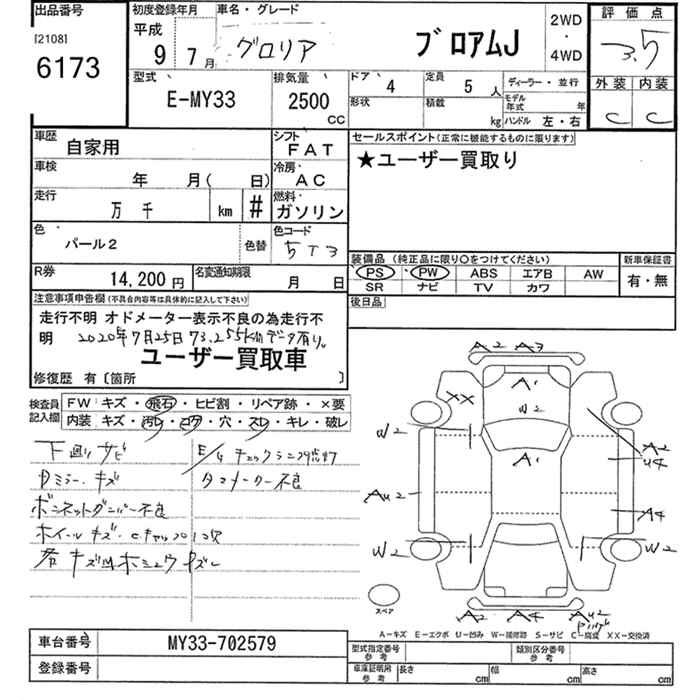 出品番号
[2108]
6173
初度登録年月
平成
9年 7月
車名・グレード
グロリア ブロアムJ
2WD
・
4WD
評価点
3.5
外装 内装
C C
型式
E-MY33
排気量
2500
CC
ドア 4
定員 5人
ディーラー・並行
形状
積載 kg
モデル年式 年
ハンドル 左・右
車歴
自家用
シフト
FAT
セールスポイント(正常に機能するものに限ります)
★ユーザー買取り
車検
年 月( 日)
冷房
AC
走行
万 千 km #
燃料
ガソリン
色
パール2
色替
色コード
5T3
装備品 (純正品に限り○をつけてください)
PS PW ABS エアB AW
SR ナビ TV カワ
新車保証書
有・無
R券
14,200円
名変通知期限
月 日
後日品
注意事項申告欄(不具合内容等は具体的に記入して下さい)
走行不明 オドメーター表示不良の為走行不
明 2020年7月25日73,255kmデータ有り。
ユーザー買取車
修復歴 有〔箇所 〕
検査員記入欄
FW: キズ・飛石・ヒビ割・リペア跡・×要
内装 キズ・汚レ・コゲ・穴・スレ・キレ・破レ
下廻りサビ
E/gチェックランプ点灯
Dミラーキズ
タコメーター不良
ボンネットダンパー不良
ホイールキズ・Cキャップ1コ欠
A2 A3
A1
XX
W2
W2
A1
A2
U4
AU2
A4
W2
W2
A2 A4 AU2
スペア
A-キズ E-エクボ U-凹み W-補修跡 S-サビ C-腐食 XX-交換済
車台番号
MY33-702579
登録番号
型式指定番号
参考
類別区分番号
参考
車庫証明用
参考
長さ cm
幅 cm
高さ cm